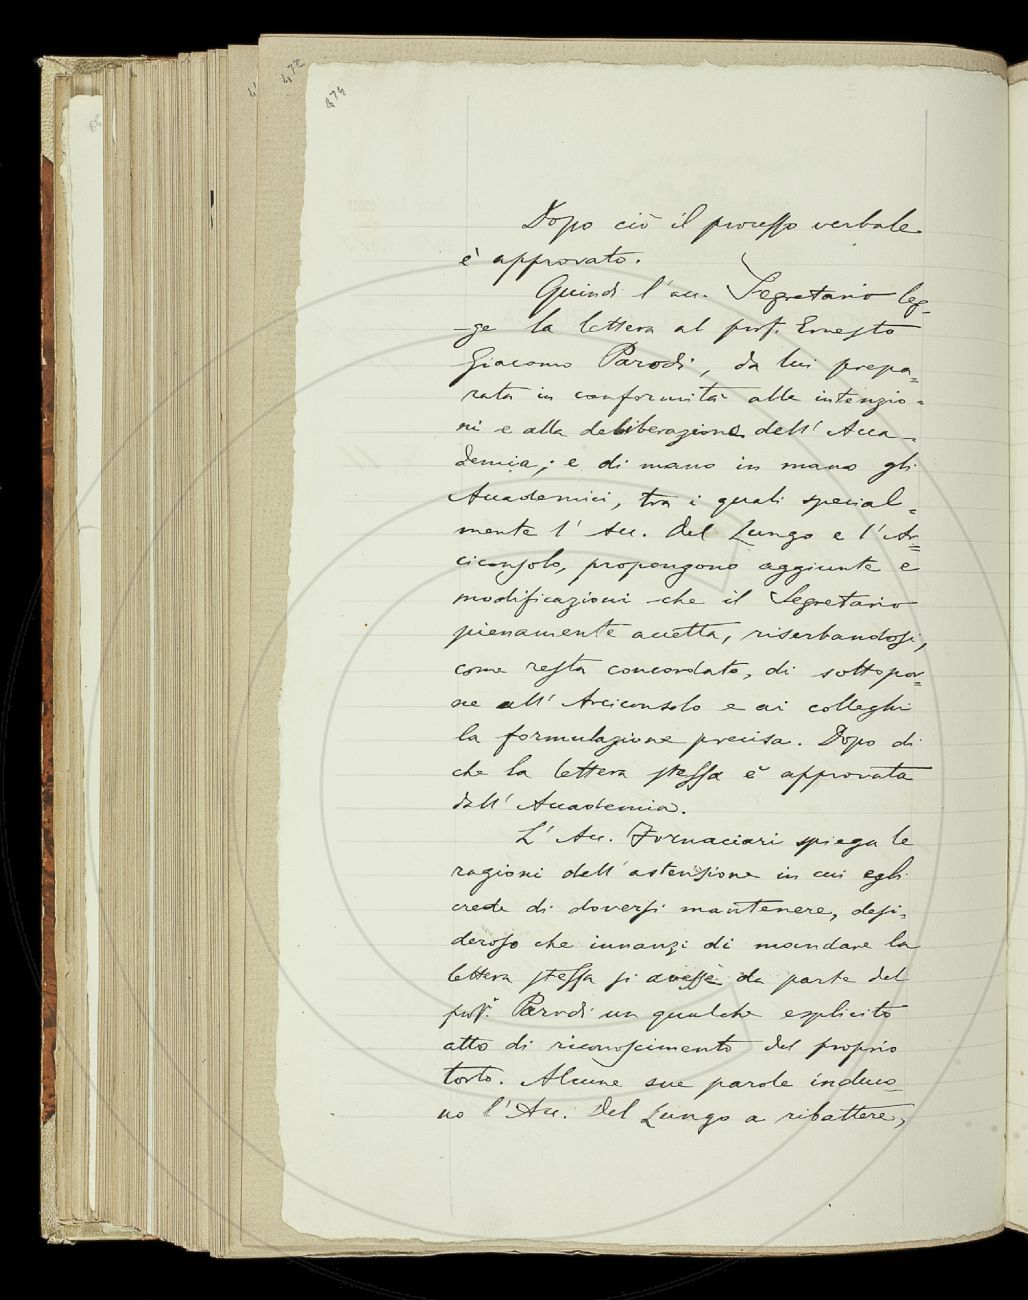 474
472
Dopo ciò il processo verbale
è approvato.
Quindi l'acc. Segretario leg-
-ge la lettera al prof. Ernesto
Giacomo Parodi, da lui prepa=
rata in conformità alle intenzio=
ni e alla deliberazione dell'Acca-
demia; e di mano in mano gli
Accademici, tra i quali special=
mente l'Acc. Del Lungo e l'Ar=
ciconsolo, propongono aggiunte e
modificazioni che il Segretario
pienamente accetta, riserbandosi,
come resta concordato, di sottopor=
re all'Arciconsolo e ai colleghi
la formulazione precisa. Dopo di
che la lettera stessa è approvata
dall'Accademia.
L'Acc. Fornaciari spiega le
ragioni dell'astensione in cui egli
crede di doversi mantenere, desi-
deroso che innanzi di mandare la
lettera stessa si avesse da parte del
prof. Parodi un qualche esplicito
atto di riconoscimento del proprio
torto. Alcune sue parole induco-
no l'Acc. Del Lungo a ribattere,